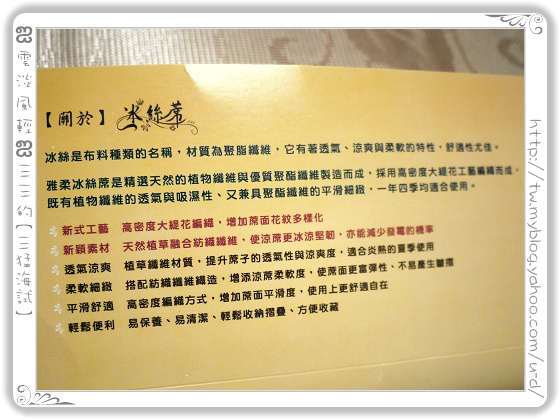 【關於】冰絲蓆
冰絲是布料種類的名稱，材質為聚脂纖維，它有著透氣、涼爽與柔軟的特性，舒適性尤佳。
雅柔冰絲蓆是精選天然的植物纖維與優質聚酯纖維製造而成，採用高密度大緹花工藝編織而成。
既有植物纖維的透氣與吸濕性、又兼具聚酯纖維的平滑細緻，一年四季均適合使用。
新式工藝 高密度大緹花編織，增加蓆面花紋多樣化
新穎素材 天然植草融合紡織纖維，使涼蓆更冰涼堅韌，亦能減少發霉的機率
透氣涼爽 植草纖維材質，提升蓆子的透氣性與涼爽度，適合炎熱的夏季使用
柔軟細緻 搭配紡織纖維織造，增添涼蓆柔軟度，使蓆面更富彈性、不易產生皺摺
平滑舒適 高密度編織方式，增加蓆面平滑度，使用上更舒適自在
輕鬆便利 易保養、易清潔、輕鬆收納摺疊、方便收藏
雲淡風輕
三三的【三猛海試】
http://tw.myblog.yahoo.com/u-d/